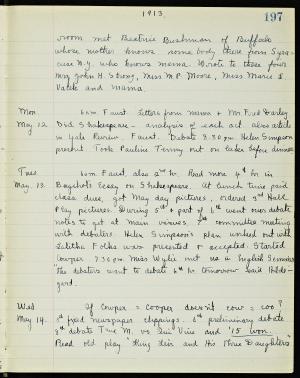 1913
197
room met Beatrice Bushman of Buffalo
whose mother knows some body there from Syra-
cuse N.Y. who knows mama. Wrote to these four
Mrs John H Strong, Miss M P Moore, Miss Marie S
and mama.
Mon
May 12.
Faust. Letters from mama & Mr Fred Darley
Did Shakespeare - analysis of each act also article
in Yale Review. Faust. Debate 8.30 p.m. Helen Simpson
presided. Took Pauline Terrny out on lake before dinner
Tues
May. 13.
Faust, also 2nd hr. Read more 4th hr in
Bagehot's Essay on Shakespeare. At lunch time paid
class dues, got May day pictures, ordered 3rd Hall
Play pictures. During 5th & part of 6th went over debate
notes to get at main issues. 7th committee meeting
with debaters. Helen Simpson's plan worked out with
Talitha Folks was presented & accepted. Started
Cowper 7.30 p.m. Miss Wylie met us in English Seminar
"The debaters want to debate 6th hr tomorrow" said Hilde-
gard.
Wed
May 14.
If Cowper = Cooper doesn't cow = coo?
3rd fixed newspaper clippings. 6th preliminary debate
8th debate True M. vs Sue Vine and '15 won.
Read old play "King Leir and His Three Daughters"